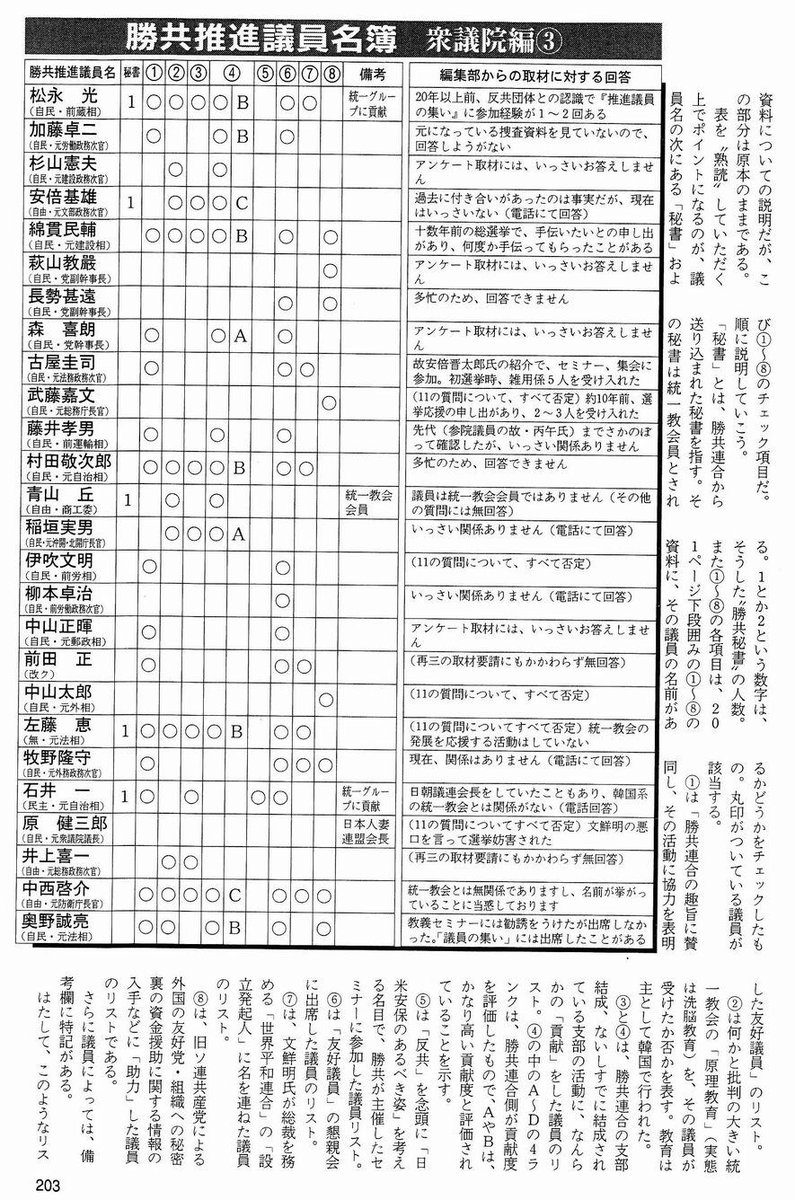 勝共推進議員名簿 衆議院編③
勝共推進議員名 秘書 ① ② ③ ④ ⑤ ⑥ ⑦ ⑧ 備考 編集部からの取材に対する回答
松永 光 1 ○ ○ ○ ○ B ○ ○ 統一グルー 20年以上前、反共団体との認識で『推進議員
(自民・前蔵相) プに貢献 の集い』に参加経験が1〜2回ある
加藤卓二 ○ ○ B ○ 元になっている捜査資料を見ていないので、
(自民・元労働政務次官) 回答しようがない
杉山憲夫 ○ ○ アンケート取材には、いっさいお答えしませ
(自民・元建設政務次官) ん
安倍基雄 1 ○ ○ ○ C 過去に付き合いがあったのは事実だが、現在
(自由・元文部政務次官) はいっさいない（電話にて回答）
綿貫民輔 ○ ○ ○ ○ B ○ ○ 十数年前の総選挙で、手伝いたいとの申し出
(自民・元建設相) があり、何度か手伝ってもらったことがある
萩山教嚴 ○ アンケート取材には、いっさいお答えしませ
(自民・党副幹事長) ん
長勢甚遠 ○ ○ 多忙のため、回答できません
(自民・党副幹事長)
森 喜朗 ○ ○ A ○ アンケート取材には、いっさいお答えしませ
(自民・党幹事長) ん
古屋圭司 ○ ○ ○ 故安倍晋太郎氏の紹介で、セミナー、集会に
(自民・元法務政務次官) 参加。初選挙時、雑用係5人を受け入れた
武藤嘉文 ○ (11の質問について、すべて否定) 約10年前、選
(自民・元総務庁長官) 挙応援の申し出があり、2〜3人を受け入れた
藤井孝男 ○ ○ ○ 先代（参院議員の故・丙午氏）までさかのぼ
(自民・前運輸相) って確認したが、いっさい関係ありません
村田敬次郎 ○ ○ ○ ○ B ○ ○ 多忙のため、回答できません
(自民・元自治相)
青山 丘 1 ○ ○ 統一教会 議員は統一教会会員ではありません（その他
(自由・商工委) 会員 の質問には無回答）
稲垣実男 ○ ○ ○ A いっさい関係ありません（電話にて回答）
(自民・元沖開・北開庁長官)
伊吹文明 ○ ○ (11の質問について、すべて否定)
(自民・前労相)
柳本卓治 ○ いっさい関係ありません（電話にて回答）
(自民・前労働政務次官)
中山正暉 ○ ○ アンケート取材には、いっさいお答えしませ
(自民・元郵政相) ん
前田 正 ○ ○ ○ (再三の取材要請にもかかわらず無回答)
(改ク)
中山太郎 ○ (11の質問について、すべて否定)
(自民・元外相)
左藤 恵 1 ○ ○ ○ ○ B ○ (11の質問についてすべて否定) 統一教会の
(無・元法相) 発展を応援する活動はしていない
牧野隆守 ○ ○ ○ ○ 現在、関係はありません（電話にて回答）
(自民・元外務政務次官)
石井 一 1 ○ ○ ○ ○ 統一グルー 日朝議連会長をしていたこともあり、韓国系
(民主・元自治相) プに貢献 の統一教会とは関係がない（電話回答）
原 健三郎 日本人妻 (11の質問についてすべて否定) 文鮮明の悪
(自民・元衆議院議長) 連盟会長 口を言って選挙妨害された
井上喜一 ○ ○ (再三の取材要請にもかかわらず無回答)
(自由・元総務政務次官)
中西啓介 ○ ○ ○ ○ C ○ ○ ○ 統一教会とは無関係でありますし、名前が挙がっ
(自由・元防衛庁長官) ていることに当惑しております
奥野誠亮 ○ ○ ○ B ○ ○ 教義セミナーには勧誘をうけたが出席しなか
(自民・元法相) った。「議員の集い」には出席したことがある
資料についての説明だが、こ
の部分は原本のままである。
表を〝熟読〟していただく
上でポイントになるのが、議
員名の次にある「秘書」およ
び①〜⑧のチェック項目だ。
順に説明していこう。
「秘書」とは、勝共連合から
送り込まれた秘書を指す。そ
の秘書は統一教会員とされ
る。1とか2という数字は、
そうした〝勝共秘書〟の人数。
また①〜⑧の各項目は、20
1ページ下段囲みの①〜⑧の
資料に、その議員の名前があ
るかどうかをチェックしたも
の。丸印がついている議員が
該当する。
①は「勝共連合の趣旨に賛
同し、その活動に協力を表明
した友好議員」のリスト。
②は何かと批判の大きい統
一教会の「原理教育」（実態
は洗脳教育）を、その議員が
受けたか否かを表す。教育は
主として韓国で行われた。
③と④は、勝共連合の支部
結成、ないしすでに結成され
ている支部の活動に、なんら
かの「貢献」をした議員のリ
スト。④の中のA〜Dの4ラ
ンクは、勝共連合側が貢献度
を評価したもので、AやBは、
かなり高い貢献度と評価され
ていることを示す。
⑤は「反共」を念頭に「日
米安保のあるべき姿」を考え
る名目で、勝共が主催したセ
ミナーに参加した議員リスト。
⑥は「友好議員」の懇親会
に出席した議員のリスト。
⑦は、文鮮明氏が総裁を務
める「世界平和連合」の「設
立発起人」に名を連ねた議員
のリスト。
⑧は、旧ソ連共産党による
外国の友好党・組織への秘密
裏の資金援助に関する情報の
入手などに「助力」した議員
のリストである。
さらに議員によっては、備
考欄に特記がある。
はたして、このようなリス
203